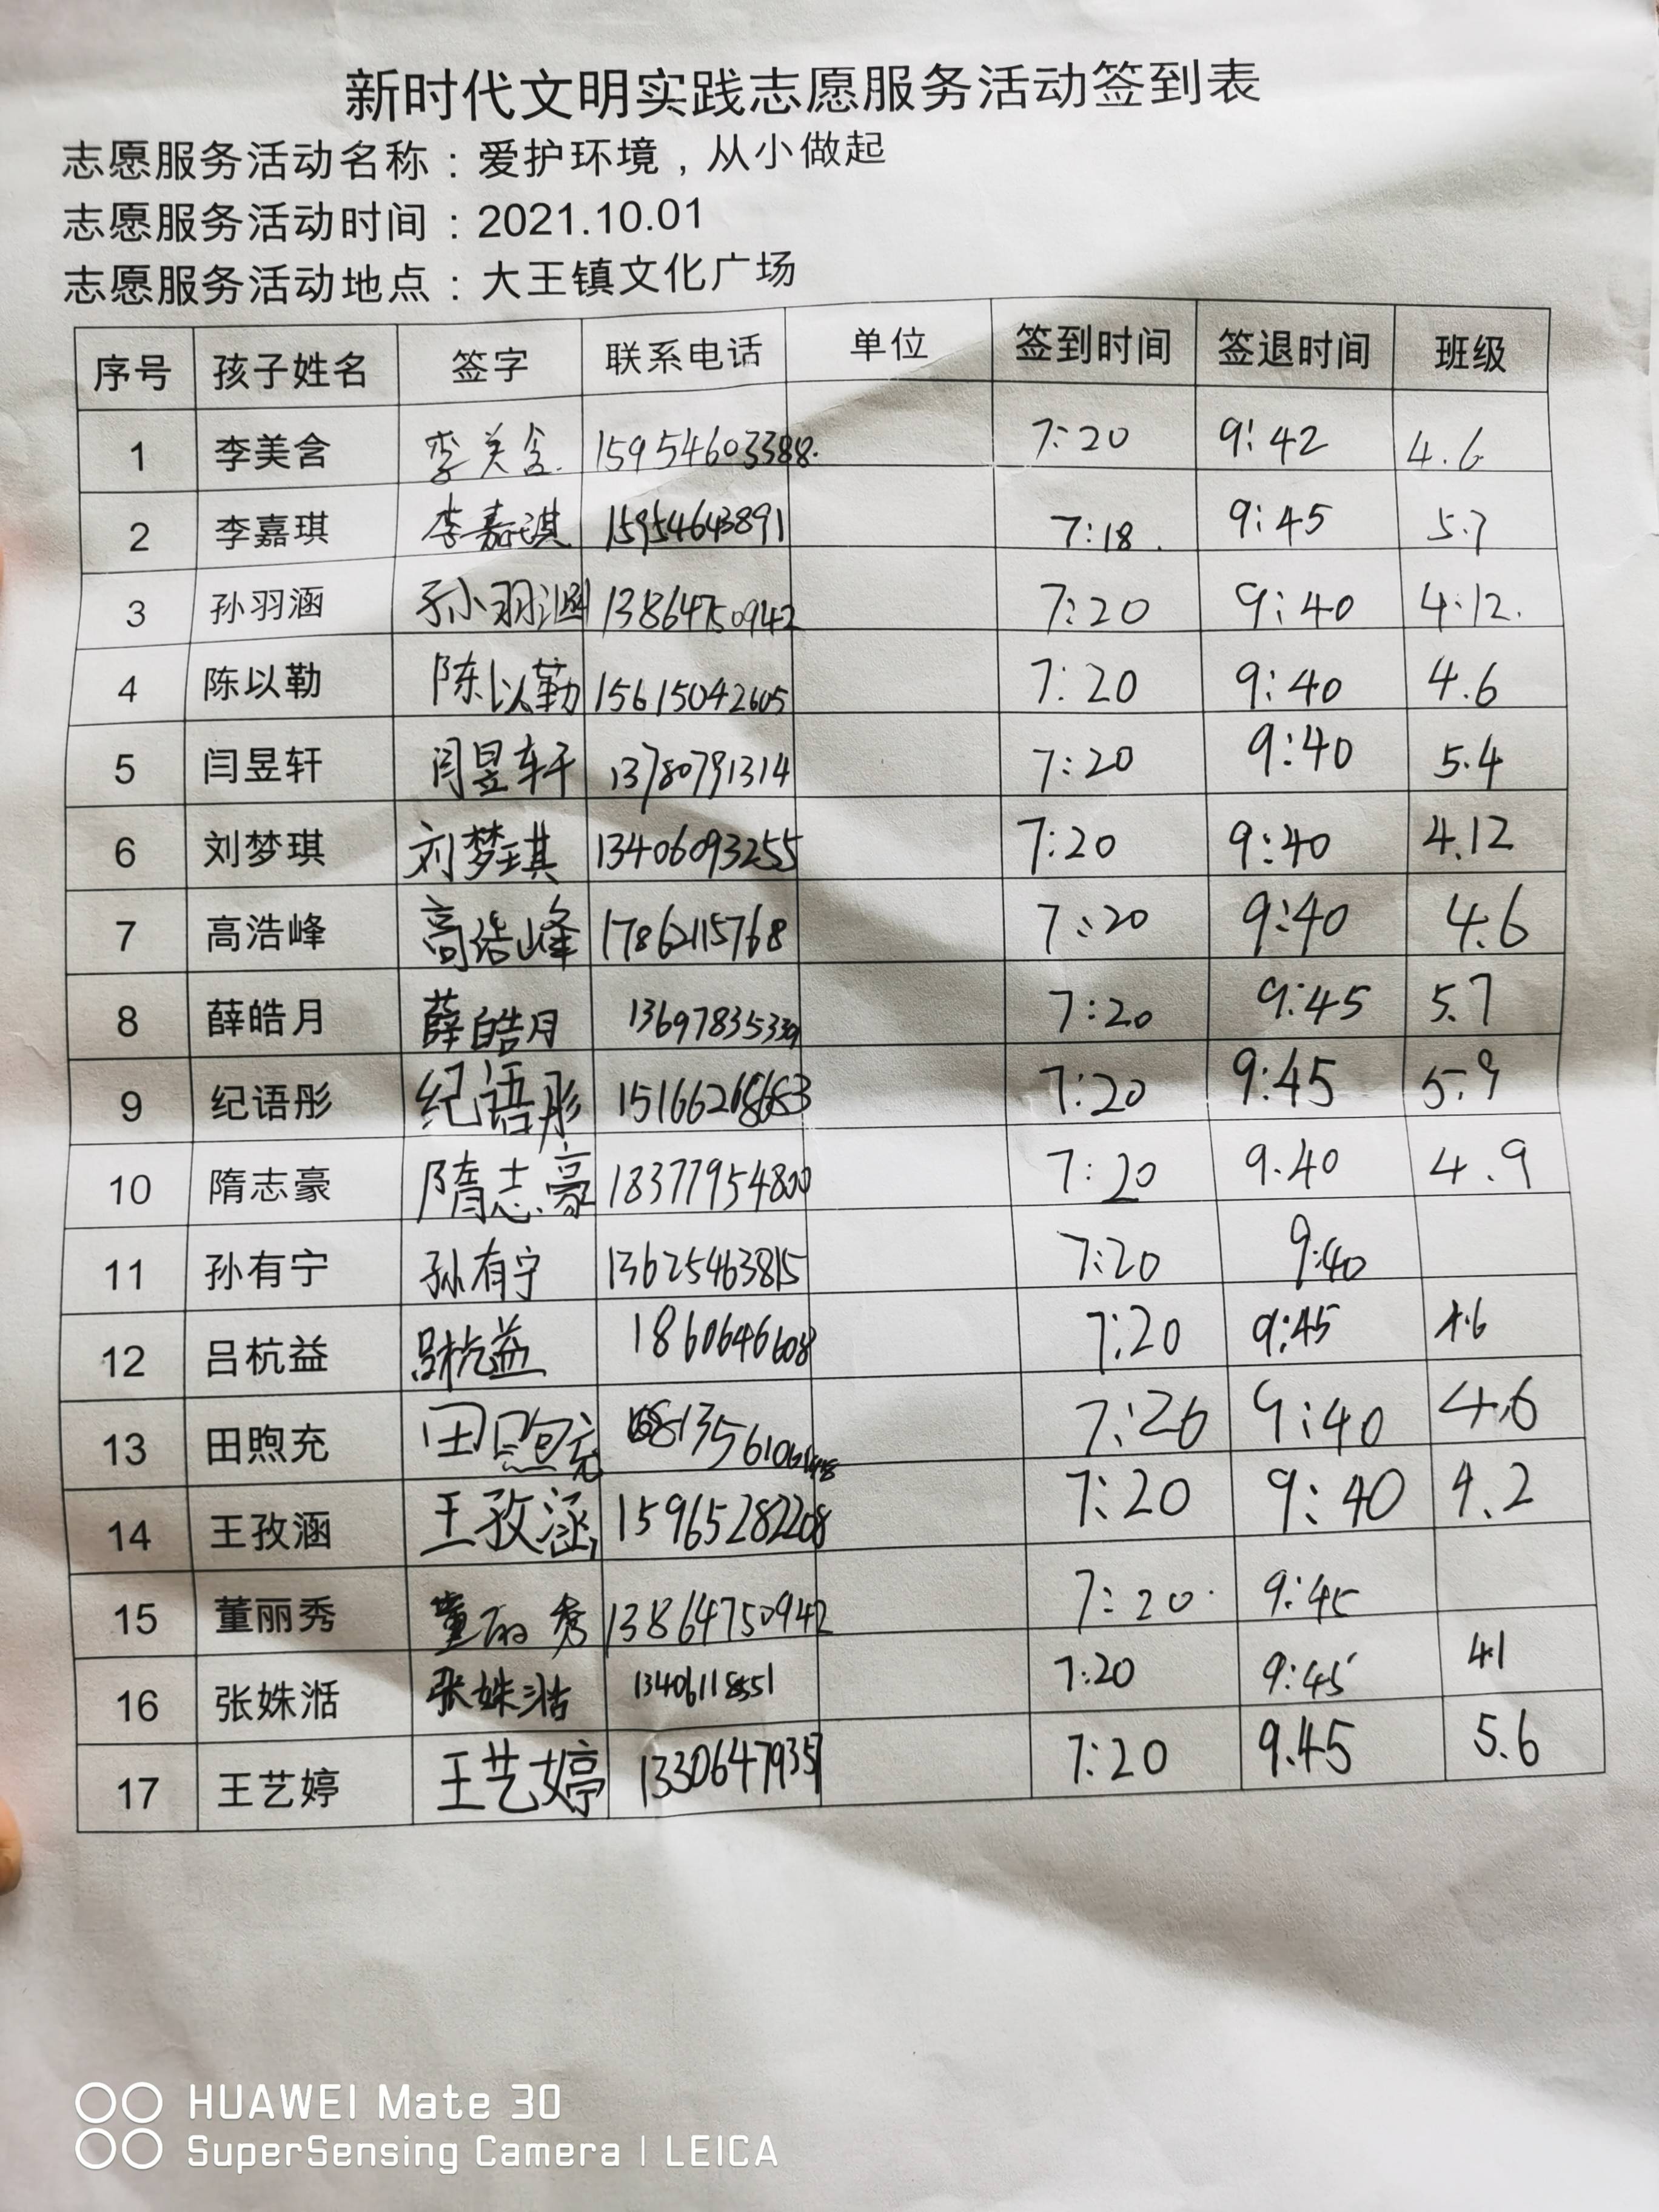 新时代文明实践志愿服务活动签到表
志愿服务活动名称：爱护环境，从小做起
志愿服务活动时间：2021.10.01
志愿服务活动地点：大王镇文化广场
序号 孩子姓名 签字 联系电话 单位 签到时间 签退时间 班级
1 李美含 李美含. 15954603388. 7:20 9:42 4.6
2 李嘉琪 李嘉琪 15954643891 7:18. 9:45 5.7
3 孙羽涵 孙羽涵 13864750942 7:20 9:40 4.12.
4 陈以勒 陈以勒 15615042605 7:20 9:40 4.6
5 闫昱轩 闫昱轩 13780791314 7:20 9:40 5.4
6 刘梦琪 刘梦琪 13406093255 7:20 9:40 4.12
7 高浩峰 高浩峰 17862115768 7:20 9:40 4.6
8 薛皓月 薛皓月 13697835339 7:20 9:45 5.7
9 纪语彤 纪语彤 15166268683 7:20 9:45 5.9
10 隋志豪 隋志豪 18377954800 7:20 9.40 4.9
11 孙有宁 孙有宁 13625463815 7:20 9:40
12 吕杭益 吕杭益 1860646608 7:20 9:45 4.6
13 田煦充 田煦充 7:20 9:40 4.6
14 王孜涵 王孜涵 15965282208 7:20 9:40 4.2
15 董丽秀 董丽秀 13864750942 7:20 9:45
16 张姝湉 张姝湉 13406118551 7:20 9:45 4.1
17 王艺婷 王艺婷 13306479357 7:20 9.45 5.6
HUAWEI Mate 30
SuperSensing Camera | LEICA